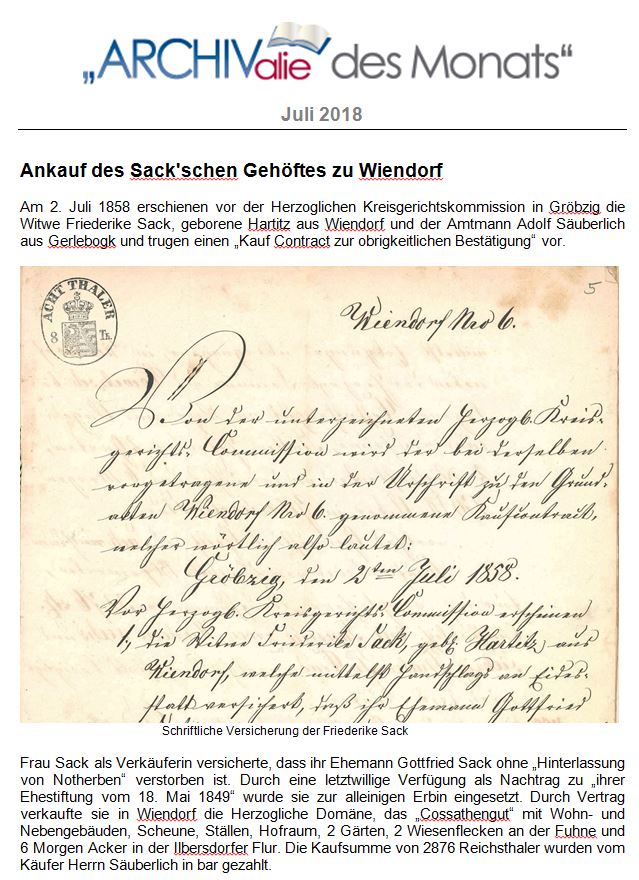 „ARCHIValie des Monats“
Juli 2018
Ankauf des Sack'schen Gehöftes zu Wiendorf
Am 2. Juli 1858 erschienen vor der Herzoglichen Kreisgerichtskommission in Gröbzig die
Witwe Friederike Sack, geborene Hartitz aus Wiendorf und der Amtmann Adolf Säuberlich
aus Gerlebogk und trugen einen „Kauf Contract zur obrigkeitlichen Bestätigung“ vor.
ACHT THALER
8 Th.
5
Wiendorf Nro 6.
Von der unterzeichneten Herzogl. Kreis-
gerichts-Commission wird der bei derselben
vorgetragene und in der Urschrift zu den Grund-
akten Wiendorf Nro 6. genommene Kaufcontract,
welcher wörtlich also lautet:
Gröbzig, den 2ten Juli 1858.
Vor Herzogl. Kreisgerichts-Commission erscheinen
1, die Witwe Friederike Sack, geb. Hartitz aus
Wiendorf, welche mittelst Handschlags an Eides-
statt versichert, daß ihr Ehemann Gottfried
Schriftliche Versicherung der Friederike Sack
Frau Sack als Verkäuferin versicherte, dass ihr Ehemann Gottfried Sack ohne „Hinterlassung
von Notherben“ verstorben ist. Durch eine letztwillige Verfügung als Nachtrag zu „ihrer
Ehestiftung vom 18. Mai 1849“ wurde sie zur alleinigen Erbin eingesetzt. Durch Vertrag
verkaufte sie in Wiendorf die Herzogliche Domäne, das „Cossathengut“ mit Wohn- und
Nebengebäuden, Scheune, Ställen, Hofraum, 2 Gärten, 2 Wiesenflecken an der Fuhne und
6 Morgen Acker in der Ilbersdorfer Flur. Die Kaufsumme von 2876 Reichsthaler wurden vom
Käufer Herrn Säuberlich in bar gezahlt.